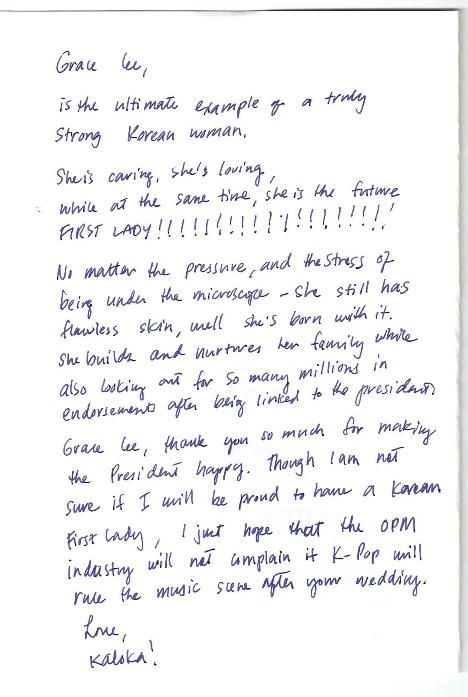 Grace Lee,
is the ultimate example of a truly
strong Korean woman.
She is caring, she's loving,
while at the same time, she is the future
FIRST LADY!!!!!!!!!!!!!!!!!!
No matter the pressure, and the stress of
being under the microscope - she still has
flawless skin, well she's born with it.
She builds and nurtures her family while
also looking out for so many millions in
endorsements after being linked to the president.
Grace Lee, thank you so much for making
the President happy. Though I am not
sure if I will be proud to have a Korean
First Lady, I just hope that the OPM
industry will not complain if K-Pop will
rule the music scene after your wedding.
Love,
Kaloka!